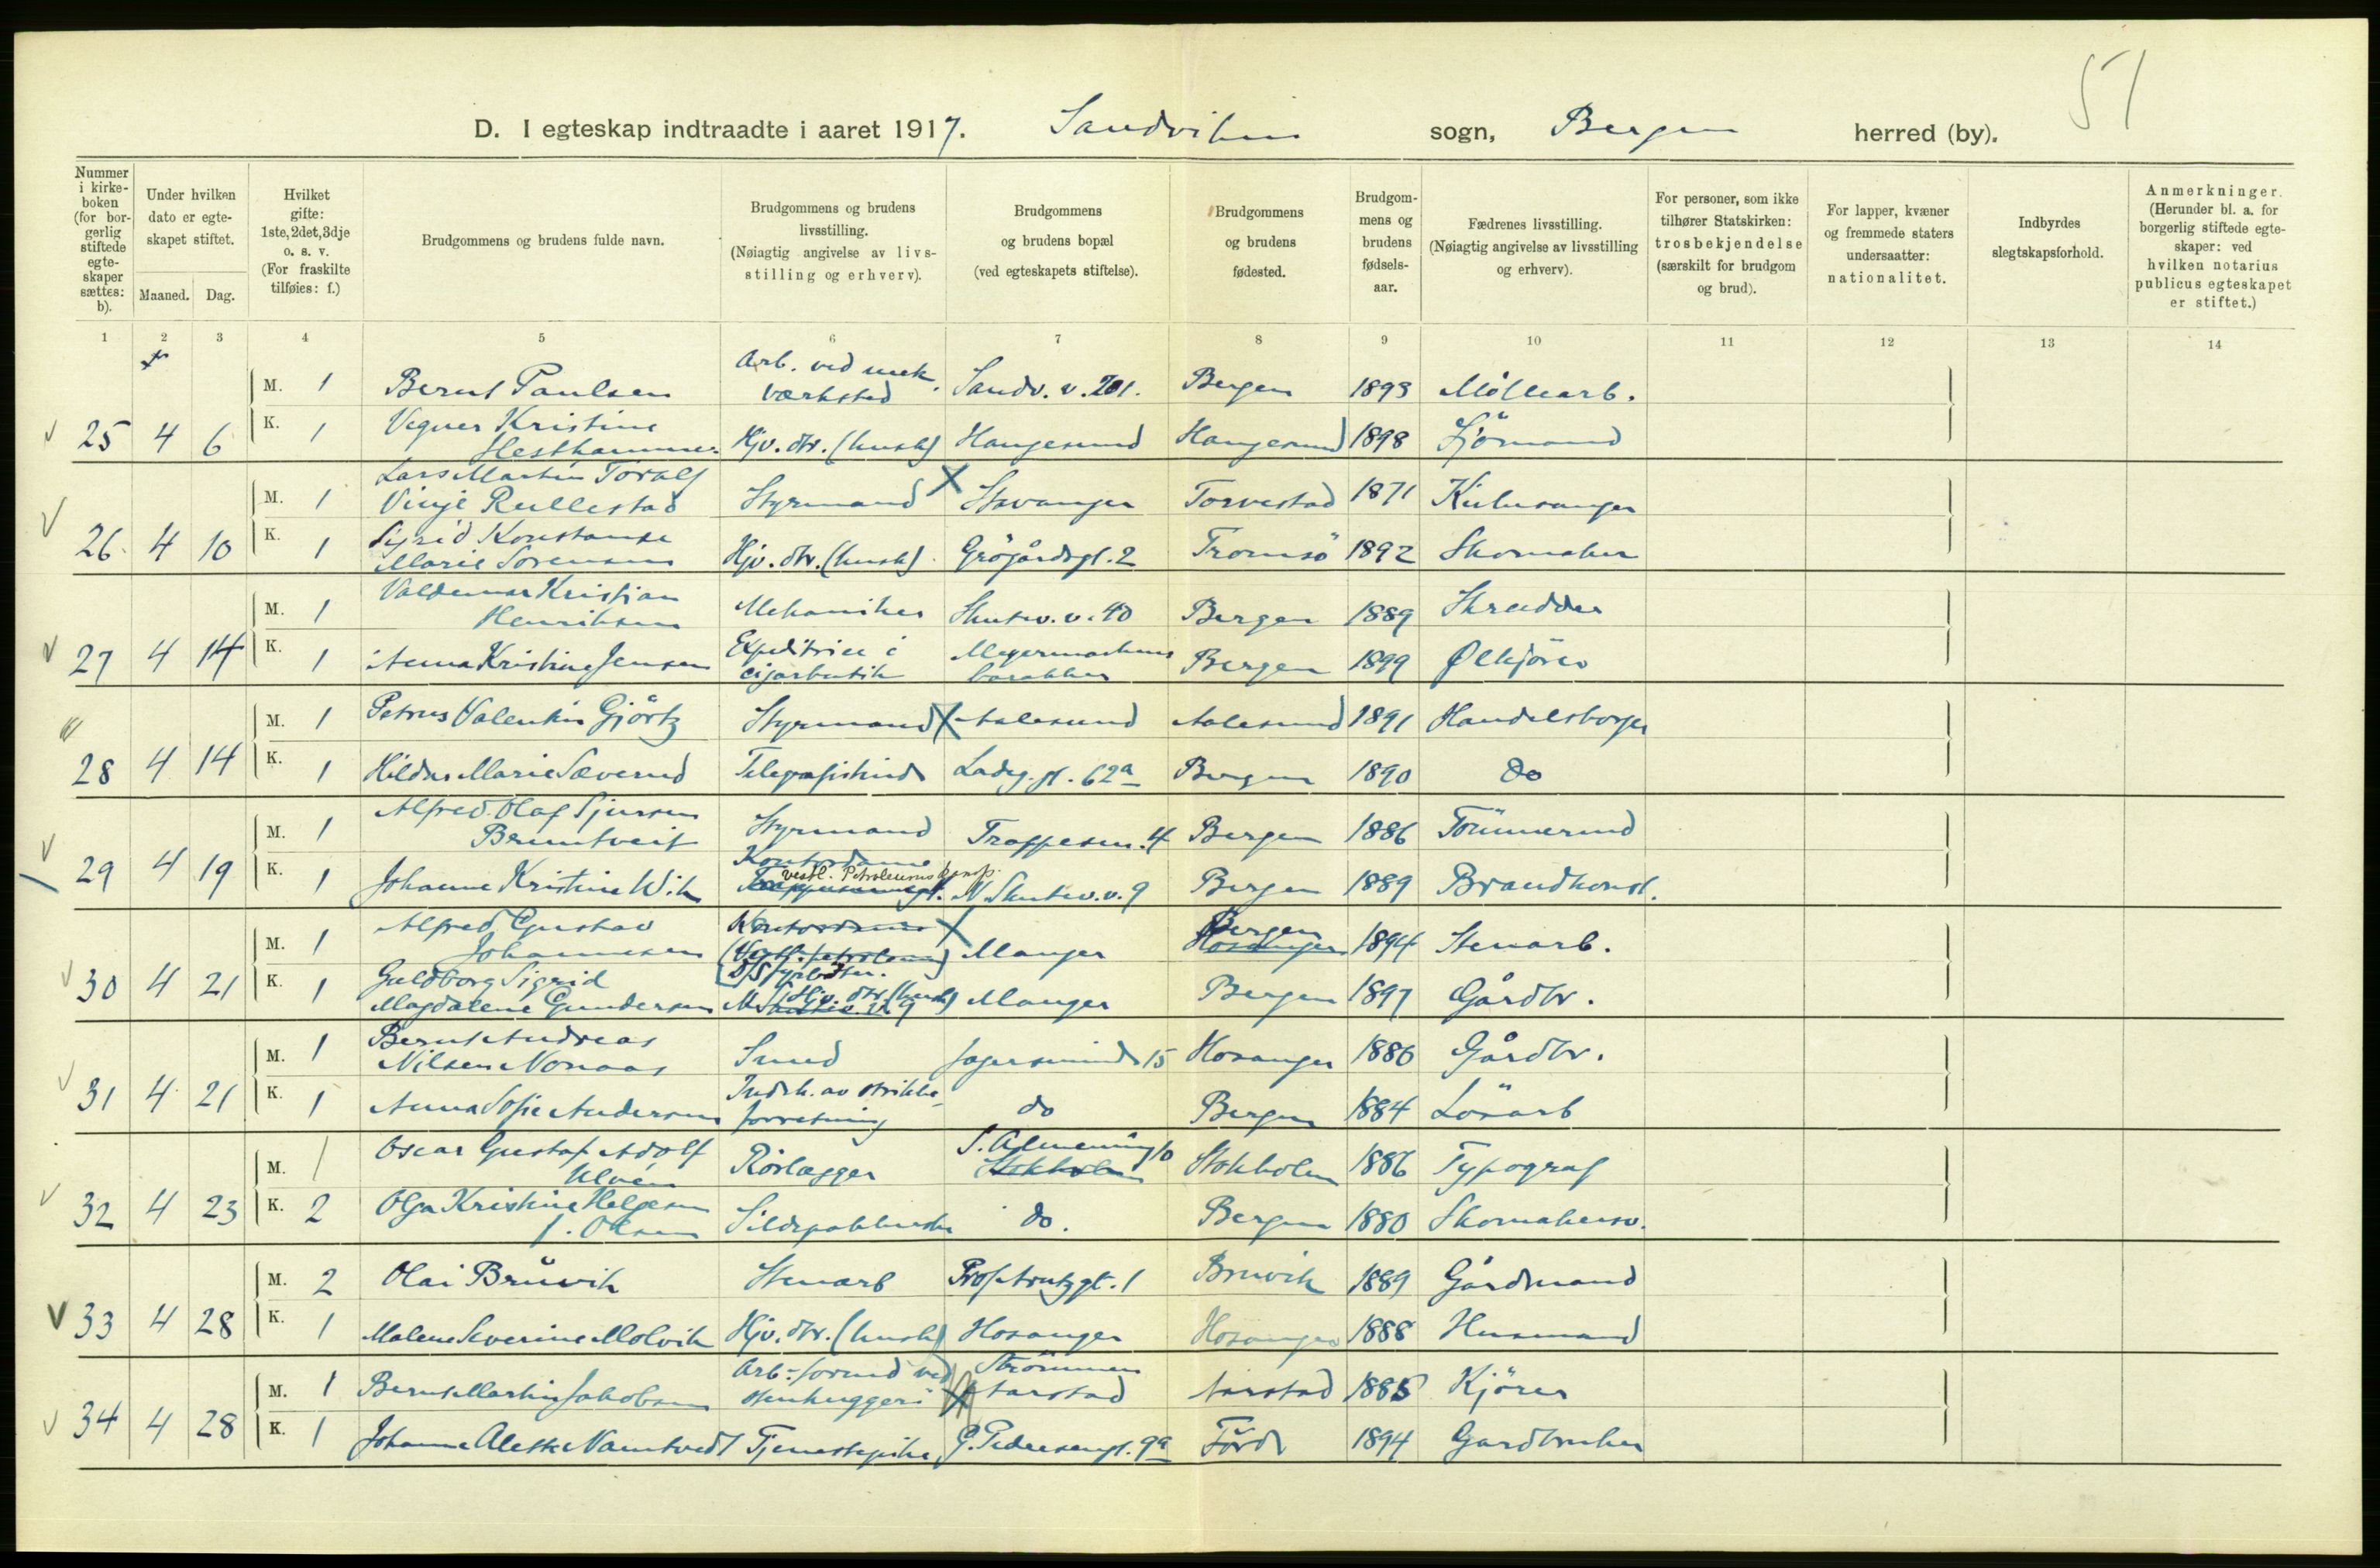 51
D. I egteskap indtraadte i aaret 1917. Sandviken sogn, Bergen herred (by).
Nummer i kirke-boken (for bor-gerlig stiftede egte-skaper sættes: b).
Under hvilken dato er egte-skapet stiftet.
Maaned. Dag.
Hvilket gifte: 1ste, 2det, 3dje o. s. v. (For fraskilte tilføies: f.)
Brudgommens og brudens fulde navn.
Brudgommens og brudens livsstilling. (Nøiagtig angivelse av livs-stilling og erhverv).
Brudgommens og brudens bopæl (ved egteskapets stiftelse).
Brudgommens og brudens fødested.
Brudgom-mens og brudens fødsels-aar.
Fædrenes livsstilling. (Nøiagtig angivelse av livsstilling og erhverv).
For personer, som ikke tilhører Statskirken: trosbekjendelse (særskilt for brudgom og brud).
For lapper, kvæner og fremmede staters undersaatter: nationalitet.
Indbyrdes slegtskapsforhold.
Anmerkninger. (Herunder bl. a. for borgerlig stiftede egte-skaper: ved hvilken notarius publicus egteskapet er stiftet.)
1 2 3 4 5 6 7 8 9 10 11 12 13 14
M. 1 Bernt Paulsen Arb. ved mek. værksted Sandv. v. 201. Bergen 1893 Möllearb.
25 4 6 K. 1 Vegner Kristine Hesthammer Hjv. dtr. (hush) Haugesund Haugesund 1898 Sjömand
M. 1 Lars Martin Toralf Vinje Rullestad Styrmand X Stavanger Torvestad 1871 Kirkesanger
26 4 10 K. 1 Sigrid Konstanse Marie Sorensen Hjv. dtr. (hush). Grögårdsgt. 2 Tromsö 1892 Skomaker
M. 1 Valdemar Kristian Henriksen Mekaniker Skutev. v. 40 Bergen 1889 Skrædder
27 4 14 K. 1 Anna Kristine Jensen Expeditrice i cigarbutik Meyermarkens barakker Bergen 1899 Ölkjörer
M. 1 Petrus Valentin Gjörtz Styrmand X Aalesund Aalesund 1891 Handelsborger
28 4 14 K. 1 Hildur Marie Sæverud Telegrafistinde Ladeg. gt. 62a Bergen 1890 do
M. 1 Alfred Olaf Sjursen Bruntveit Styrmand Trappesm. 4 Bergen 1886 Tömmermd
29 4 19 K. 1 Johanne Kristine Wik Kontordame vestl. Petroleumskomp. N. Skutev. v. 9 Bergen 1889 Brandkonst.
M. 1 Alfred Gustav Johannesen Kontordame (Vestl. petroleum) D/S fyrböter. X Manger Bergen Hosanger 1894 Stenarb.
30 4 21 K. 1 Guldborg Sigrid Magdalene Gundersen Hjv. dtr. (hush) Manger Bergen 1897 Gårdbr.
M. 1 Bernt Andreas Nilsen Nonaas Smed Jægersmind 15 Hosanger 1886 Gårdbr.
31 4 21 K. 1 Anna Sofie Andersen Indeh. av strikke-forretning do Bergen 1884 Lösarb
M. 1 Oscar Gustaf Adolf Ulvén Rörlægger S. Almenning 10 Stokholm Stokholm 1886 Typograf
32 4 23 K. 2 Olga Kristine Helgesen f. Olsen Sildepakkerske do. Bergen 1880 Skomakersv.
M. 2 Olai Brŭvik Stenarb Prof. Arntzgt. 1 Bruvik 1889 Gårdmand
33 4 28 K. 1 Malene Severine Molvik Hjv. dtr. (hush) Hosanger Hosanger 1888 Husmand
M. 1 Bernt Martin Jakobsen Arb.-formd ved stenhuggeri X Strömmen Aarstad Aarstad 1885 Kjörer
34 4 28 K. 1 Johanne Aleske Namtvedt Tjenestepike G. Pedersensgt. 9a Förde 1894 Gardbruker